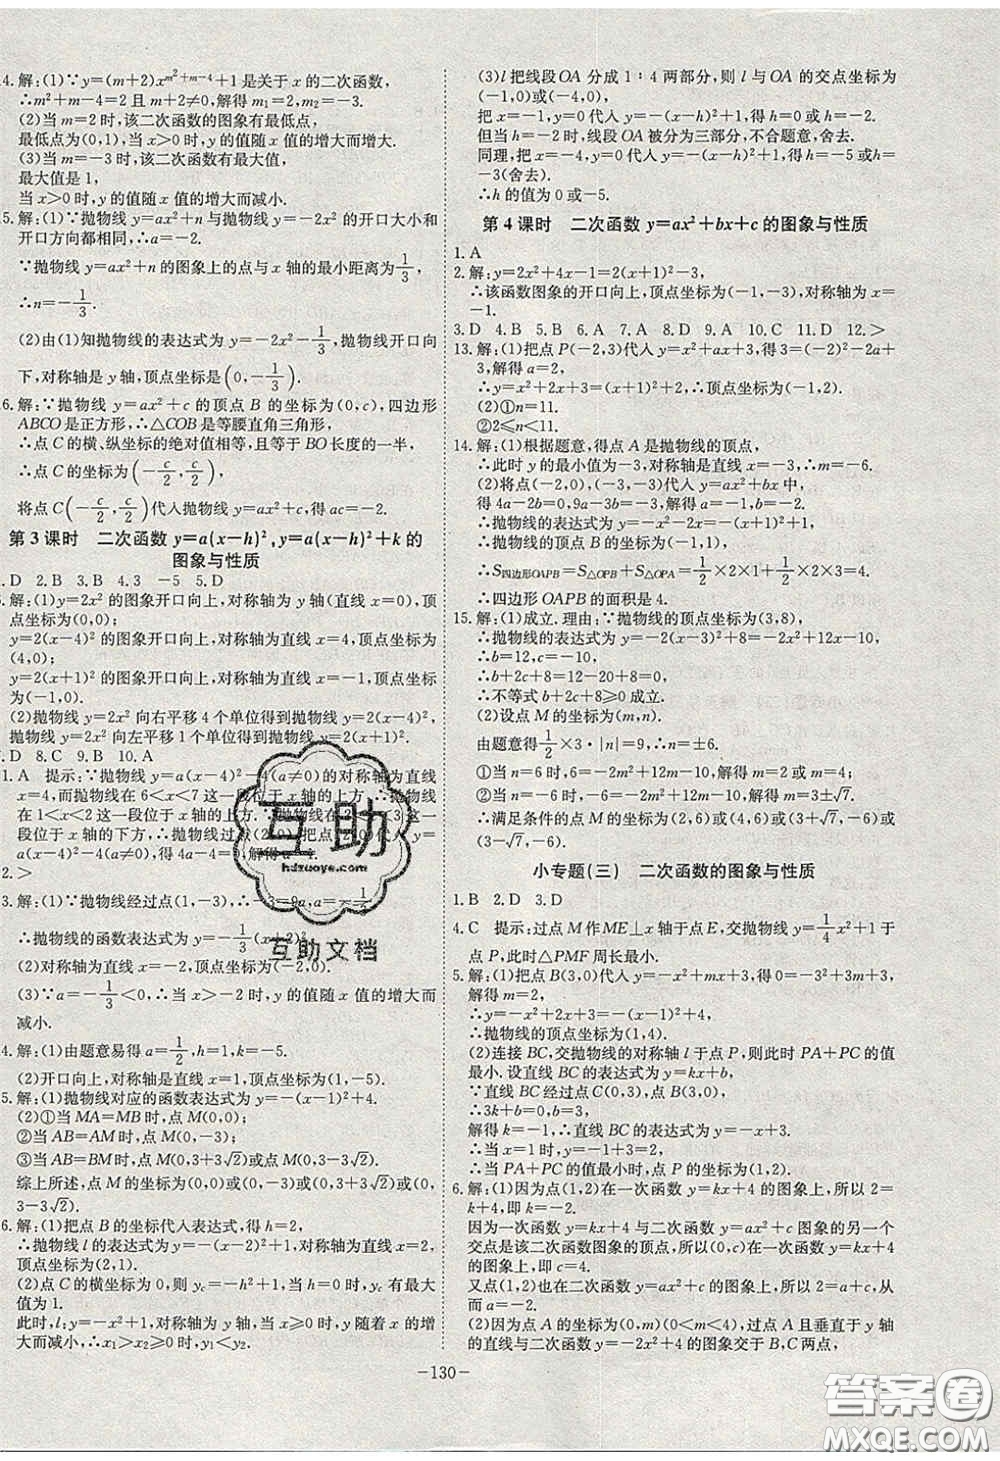 4.解:(1)∵y=(m+2)x^{m²+m-4}+1是关于x的二次函数,
∴m²+m-4=2且m+2≠0,解得m₁=2,m₂=-3.
(2)当m=2时,该二次函数的图象有最低点,
最低点为(0,1),当x>0时,y的值随x值的增大而增大.
(3)当m=-3时,该二次函数有最大值,
最大值是1,
当x>0时,y的值随x值的增大而减小.
5.解:(1)∵抛物线y=ax²+n与抛物线y=-2x²的开口大小和
开口方向都相同,∴a=-2.
∵抛物线y=ax²+n的图象上的点与x轴的最小距离为1/3,
∴n=-1/3.
(2)由(1)知抛物线的表达式为y=-2x²-1/3,抛物线开口向
下,对称轴是y轴,顶点坐标为(0,-1/3).
6.解:∵抛物线y=ax²+c的顶点B的坐标为(0,c),四边形
ABCO是正方形,∴△COB是等腰直角三角形,
∴点C的横、纵坐标的绝对值相等,且等于BO长度的一半,
∴点C的坐标为(-c/2,c/2),
将点C(-c/2,c/2)代入抛物线y=ax²+c,得ac=-2.
第3课时 二次函数y=a(x-h)²,y=a(x-h)²+k的
图象与性质
.D 2.B 3.B 4.3 -5 5.D
6.解:(1)y=2x²的图象开口向上,对称轴为y轴(直线x=0),顶
点坐标为(0,0);
y=2(x-4)²的图象开口向上,对称轴为直线x=4,顶点坐标为
(4,0);
y=2(x+1)²的图象开口向上,对称轴为直线x=-1,顶点坐标
为(-1,0).
(2)抛物线y=2x²向右平移4个单位得到抛物线y=2(x-4)²,
抛物线y=2x²向左平移1个单位得到抛物线y=2(x+1)².
.D 8.C 9.B 10.A
1.A 提示:∵抛物线y=a(x-4)²-4(a≠0)的对称轴为直线
x=4,而抛物线在6<x<7这一段位于x轴的上方,∴抛物线
在1<x<2这一段位于x轴的上方.∵抛物线在2<x<3这一
段位于x轴的下方,∴抛物线过点(2,0).把点(2,0)代入y=
a(x-4)²-4(a≠0),得4a-4=0,解得a=1.
2.>
3.解:(1)∵抛物线经过点(1,-3),∴-3=9a,a=-1/3.
∴抛物线的函数表达式为y=-1/3(x+2)².
(2)对称轴为直线x=-2,顶点坐标为(-2,0).
(3)∵a=-1/3<0,∴当x>-2时,y的值随x值的增大而
减小.
4.解:(1)由题意易得a=1/2,h=1,k=-5.
(2)开口向上,对称轴是直线x=1,顶点坐标为(1,-5).
5.解:(1)抛物线对应的函数表达式为y=-(x-1)²+4.
(2)①当MA=MB时,点M(0,0);
②当AB=AM时,点M(0,-3);
③当AB=BM时,点M(0,3+3√2)或(0,3-3√2).
综上所述,点M的坐标为(0,0)或(0,-3)或(0,3+3√2)或(0,
3-3√2).
6.解:(1)把点B的坐标代入表达式,得h=2,
∴抛物线l的表达式为y=-(x-2)²+1,对称轴为直线x=2,顶点坐标为
(2,1).
(2)点C的横坐标为0,则y_c=-h²+1,当h=0时,y_c有最大
值为1.
此时,l:y=-x²+1,对称轴为y轴,当x≥0时,y随着x的增
大而减小,∴x₁>x₂≥0时,y₁<y₂.
(3)l把线段OA分成1∶4两部分,则l与OA的交点坐标为
(-1,0)或(-4,0),
把x=-1,y=0代入y=-(x-h)²+1,得h=0或h=-2.
但当h=-2时,线段OA被分为三部分,不合题意,舍去.
同理,把x=-4,y=0代入y=-(x-h)²+1,得h=-5或h=
-3(舍去).
∴h的值为0或-5.
第4课时 二次函数y=ax²+bx+c的图象与性质
1.A
2.解:y=2x²+4x-1=2(x+1)²-3,
∴该函数图象的开口向上,顶点坐标为(-1,-3),对称轴为x=
-1.
3.D 4.B 5.B 6.A 7.D 8.D 9.A 10.C 11.D 12.>
13.解:(1)把点P(-2,3)代入y=x²+ax+3,得3=(-2)²-2a+
3,解得a=2,
∴y=x²+2x+3=(x+1)²+2,∴顶点坐标为(-1,2).
(2)①n=11.
②2≤n<11.
14.解:(1)根据题意,得点A是抛物线的顶点,
∴此时y的最小值为-3,对称轴是直线x=-3.
(2)将点(-2,0),(-3,-3)代入y=ax²+bx中,
得4a-2b=0,9a-3b=-3,解得a=-1,b=-2.
∴抛物线的表达式为y=-x²-2x=-(x+1)²+1.
∴抛物线的顶点B的坐标为(-1,1).
∴S四边形OAPB=S△OPA+S△OPB=1/2×2×1+1/2×2×3=4.
∴四边形OAPB的面积是4.
15.解:(1)成立.理由:∵抛物线的顶点为(3,8),
∴抛物线的表达式为y=-2(x-3)²+8=-2x²+12x-10,
∴b=12,c=-10.
∴b+2c+8=12-20+8=0.
∴不等式b+2c+8≥0成立.
(2)设点M的坐标为(m,n).
由题意得1/2×3·|n|=9,∴n=±6.
①当n=6时,6=-2m²+12m-10,解得m=2或4;
②当n=-6时,-6=-2m²+12m-10,解得m=3±√7.
∴满足条件的点M的坐标为(2,6)或(4,6)或(3+√7,-6)或
(3-√7,-6).
小专题(三) 二次函数的图象与性质
1.B 2.D 3.D
4.C 提示:过点M作ME⊥x轴于点E,交抛物线y=1/4x²+1于
点P,此时△PMF周长最小.
5.解:(1)把点B(3,0)代入y=-x²+mx+3,得0=-3²+3m+3,
解得m=2,
∴y=-x²+2x+3=-(x-1)²+4,
∴抛物线的顶点坐标为(1,4).
(2)连接BC,交抛物线的对称轴l于点P,则此时PA+PC的值
最小.设直线BC的表达式为y=kx+b.
∵直线BC经过点C(0,3),点B(3,0),
∴3k+b=0,b=3,
解得k=-1,∴直线BC的表达式为y=-x+3.
当x=1时,y=-1+3=2;
∴当PA+PC的值最小时,点P的坐标为(1,2).
6.解:(1)因为点(1,2)在一次函数y=kx+4的图象上,所以2=
k+4,即k=-2.
因为一次函数y=kx+4与二次函数y=ax²+c图象的另一个
交点是该二次函数图象的顶点,所以(0,c)在一次函数y=kx+4
的图象上,即c=4.
又点(1,2)也在二次函数y=ax²+c的图象上,所以2=a+c,从
而a=-2.
(2)因为点A的坐标为(0,m)(0<m<4),过点A且垂直于y轴
的直线与二次函数y=-2x²+4的图象交于B,C两点,
-130-
互助
hdzuoye.com
互助文档
答案圈
MXQE.COM